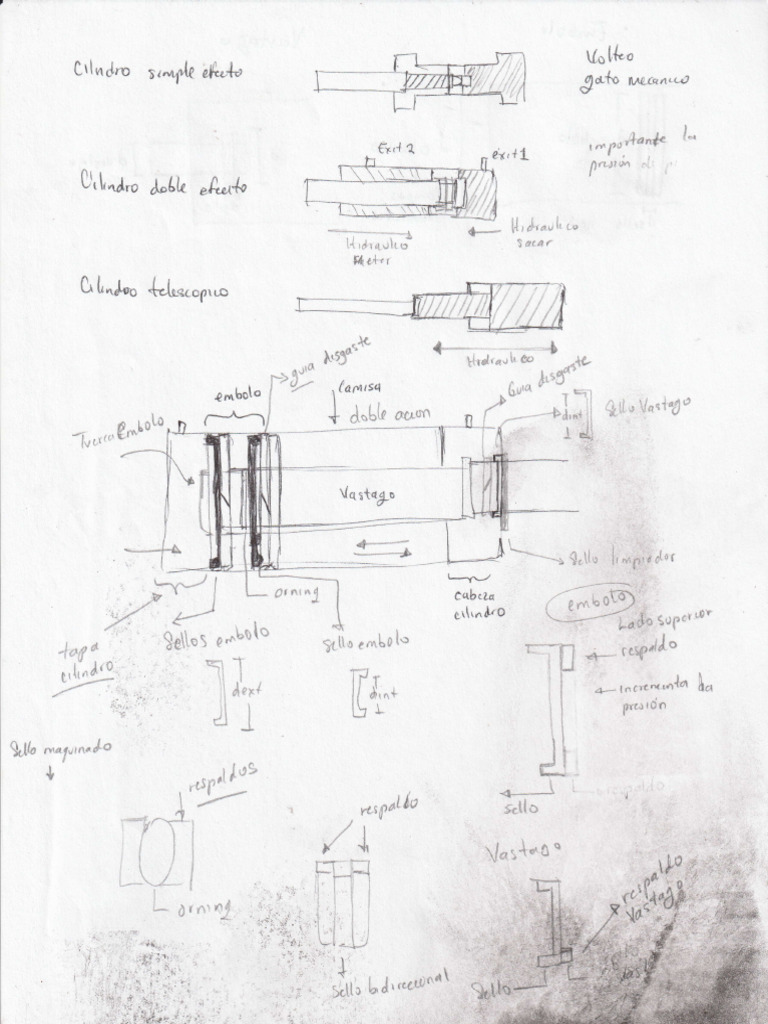 Cilindro simple efecto
Volteo
gato mecanico
Exit 2
exit 1
importante la
presión de
Cilindro doble efecto
Hidraulico
Meter
Hidraulico
sacar
Cilindro telescopico
Hidraulico
guia disgaste
embolo
camisa
doble acion
Guia disgaste
dint
Sello Vastago
Tuerca Embolo
Vastago
Sello limpiador
orning
cabeza
cilindro
embolo
tapa
cilindro
Sellos embolo
Sello embolo
Lado superior
respaldo
dext
dint
incrementa la
presión
Sello maquinado
respaldos
respaldo
sello
Vastago
respaldo
Vastago
orning
Sello bidireccional
Sello